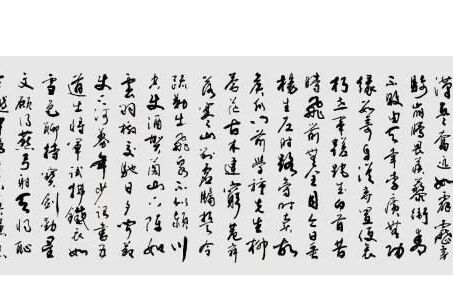 漢兵奮迅如霹靂虜
騎崩騰畏蒺藜衛青
不敗由天幸李廣無功
緣數奇自從棄置便衰
朽世事蹉跎成白首昔
時飛箭無全目今日垂
楊生左肘路旁時賣故
侯瓜門前學種先生柳
蒼茫古木連窮巷寥
落寒山對虛牖誓令
疏勒出飛泉不似潁川
空使酒賀蘭山下陣如
雲羽檄交馳日夕聞節
使三河募年少詔書五
道出將軍試拂鐵衣如
雪色聊持寶劍動星
文願得燕弓射天將恥